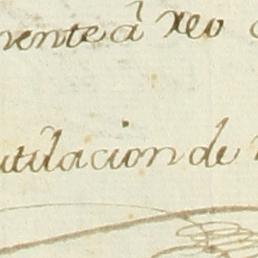 nente â reo
utilacion de